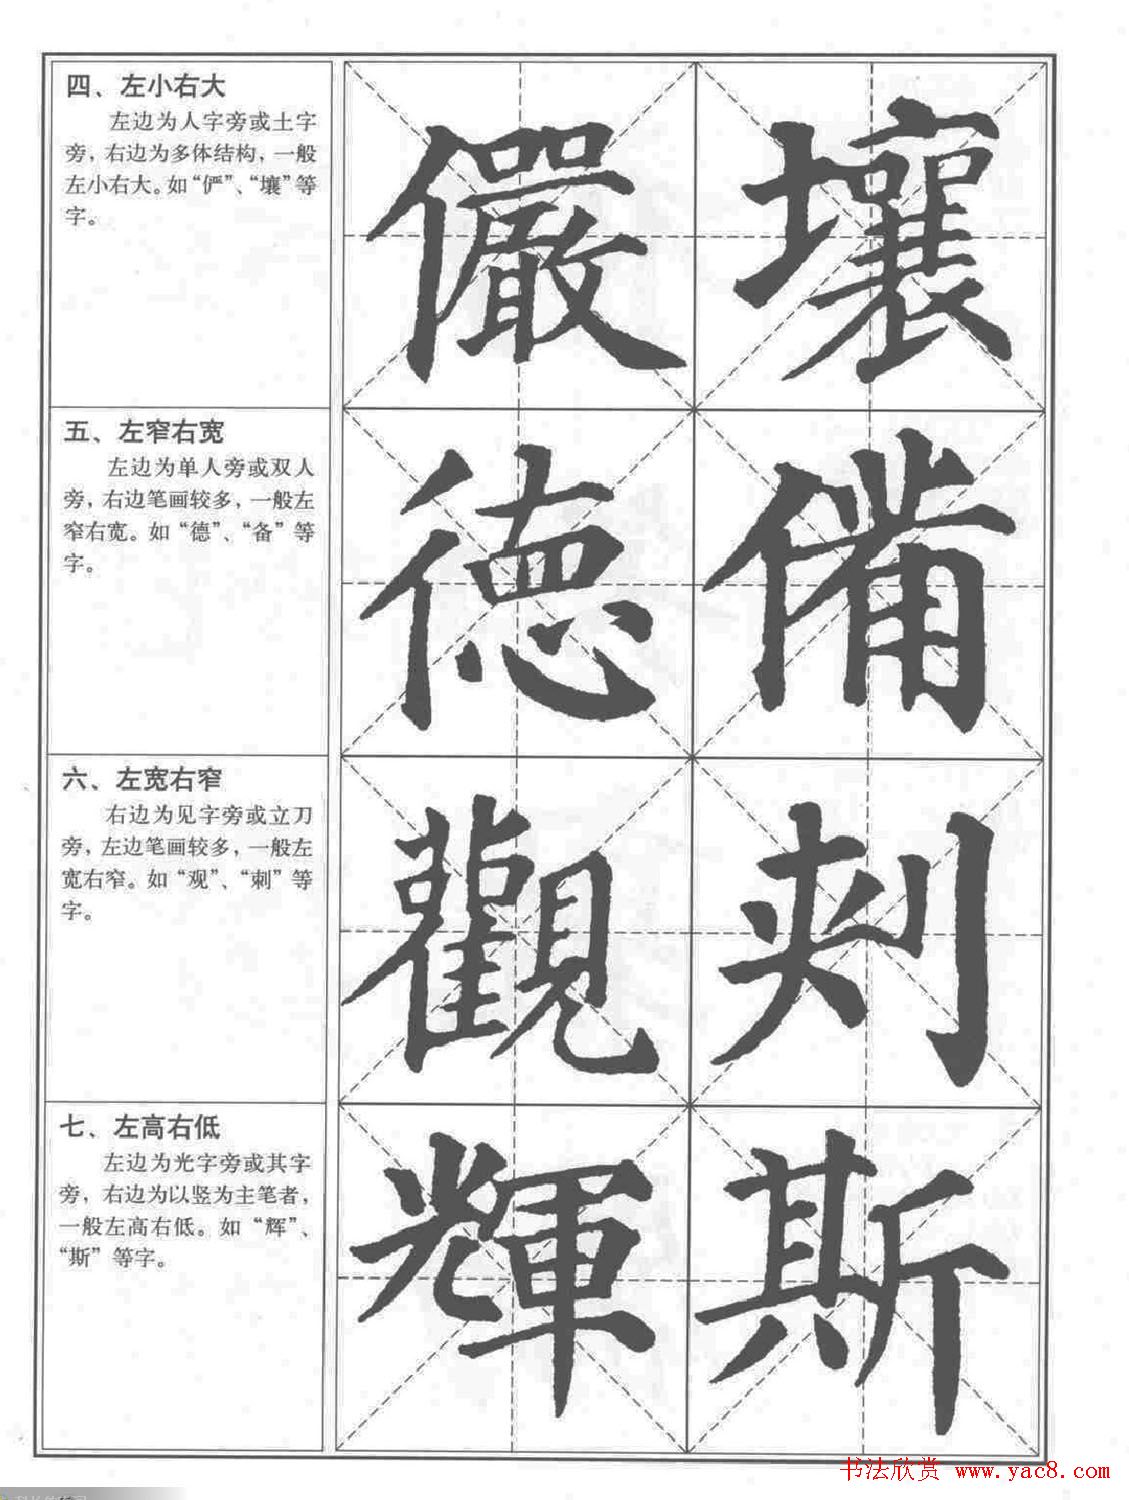 四、左小右大
左边为人字旁或土字
旁，右边为多体结构，一般
左小右大。如“俨”、“壤”等
字。
儼 壤
五、左窄右宽
左边为单人旁或双人
旁，右边笔画较多，一般左
窄右宽。如“德”、“备”等
字。
德 備
六、左宽右窄
右边为见字旁或立刀
旁，左边笔画较多，一般左
宽右窄。如“观”、“刺”等
字。
觀 刺
七、左高右低
左边为光字旁或其字
旁，右边为以竖为主笔者，
一般左高右低。如“辉”、
“斯”等字。
輝 斯
书法欣赏 www.yac8.com